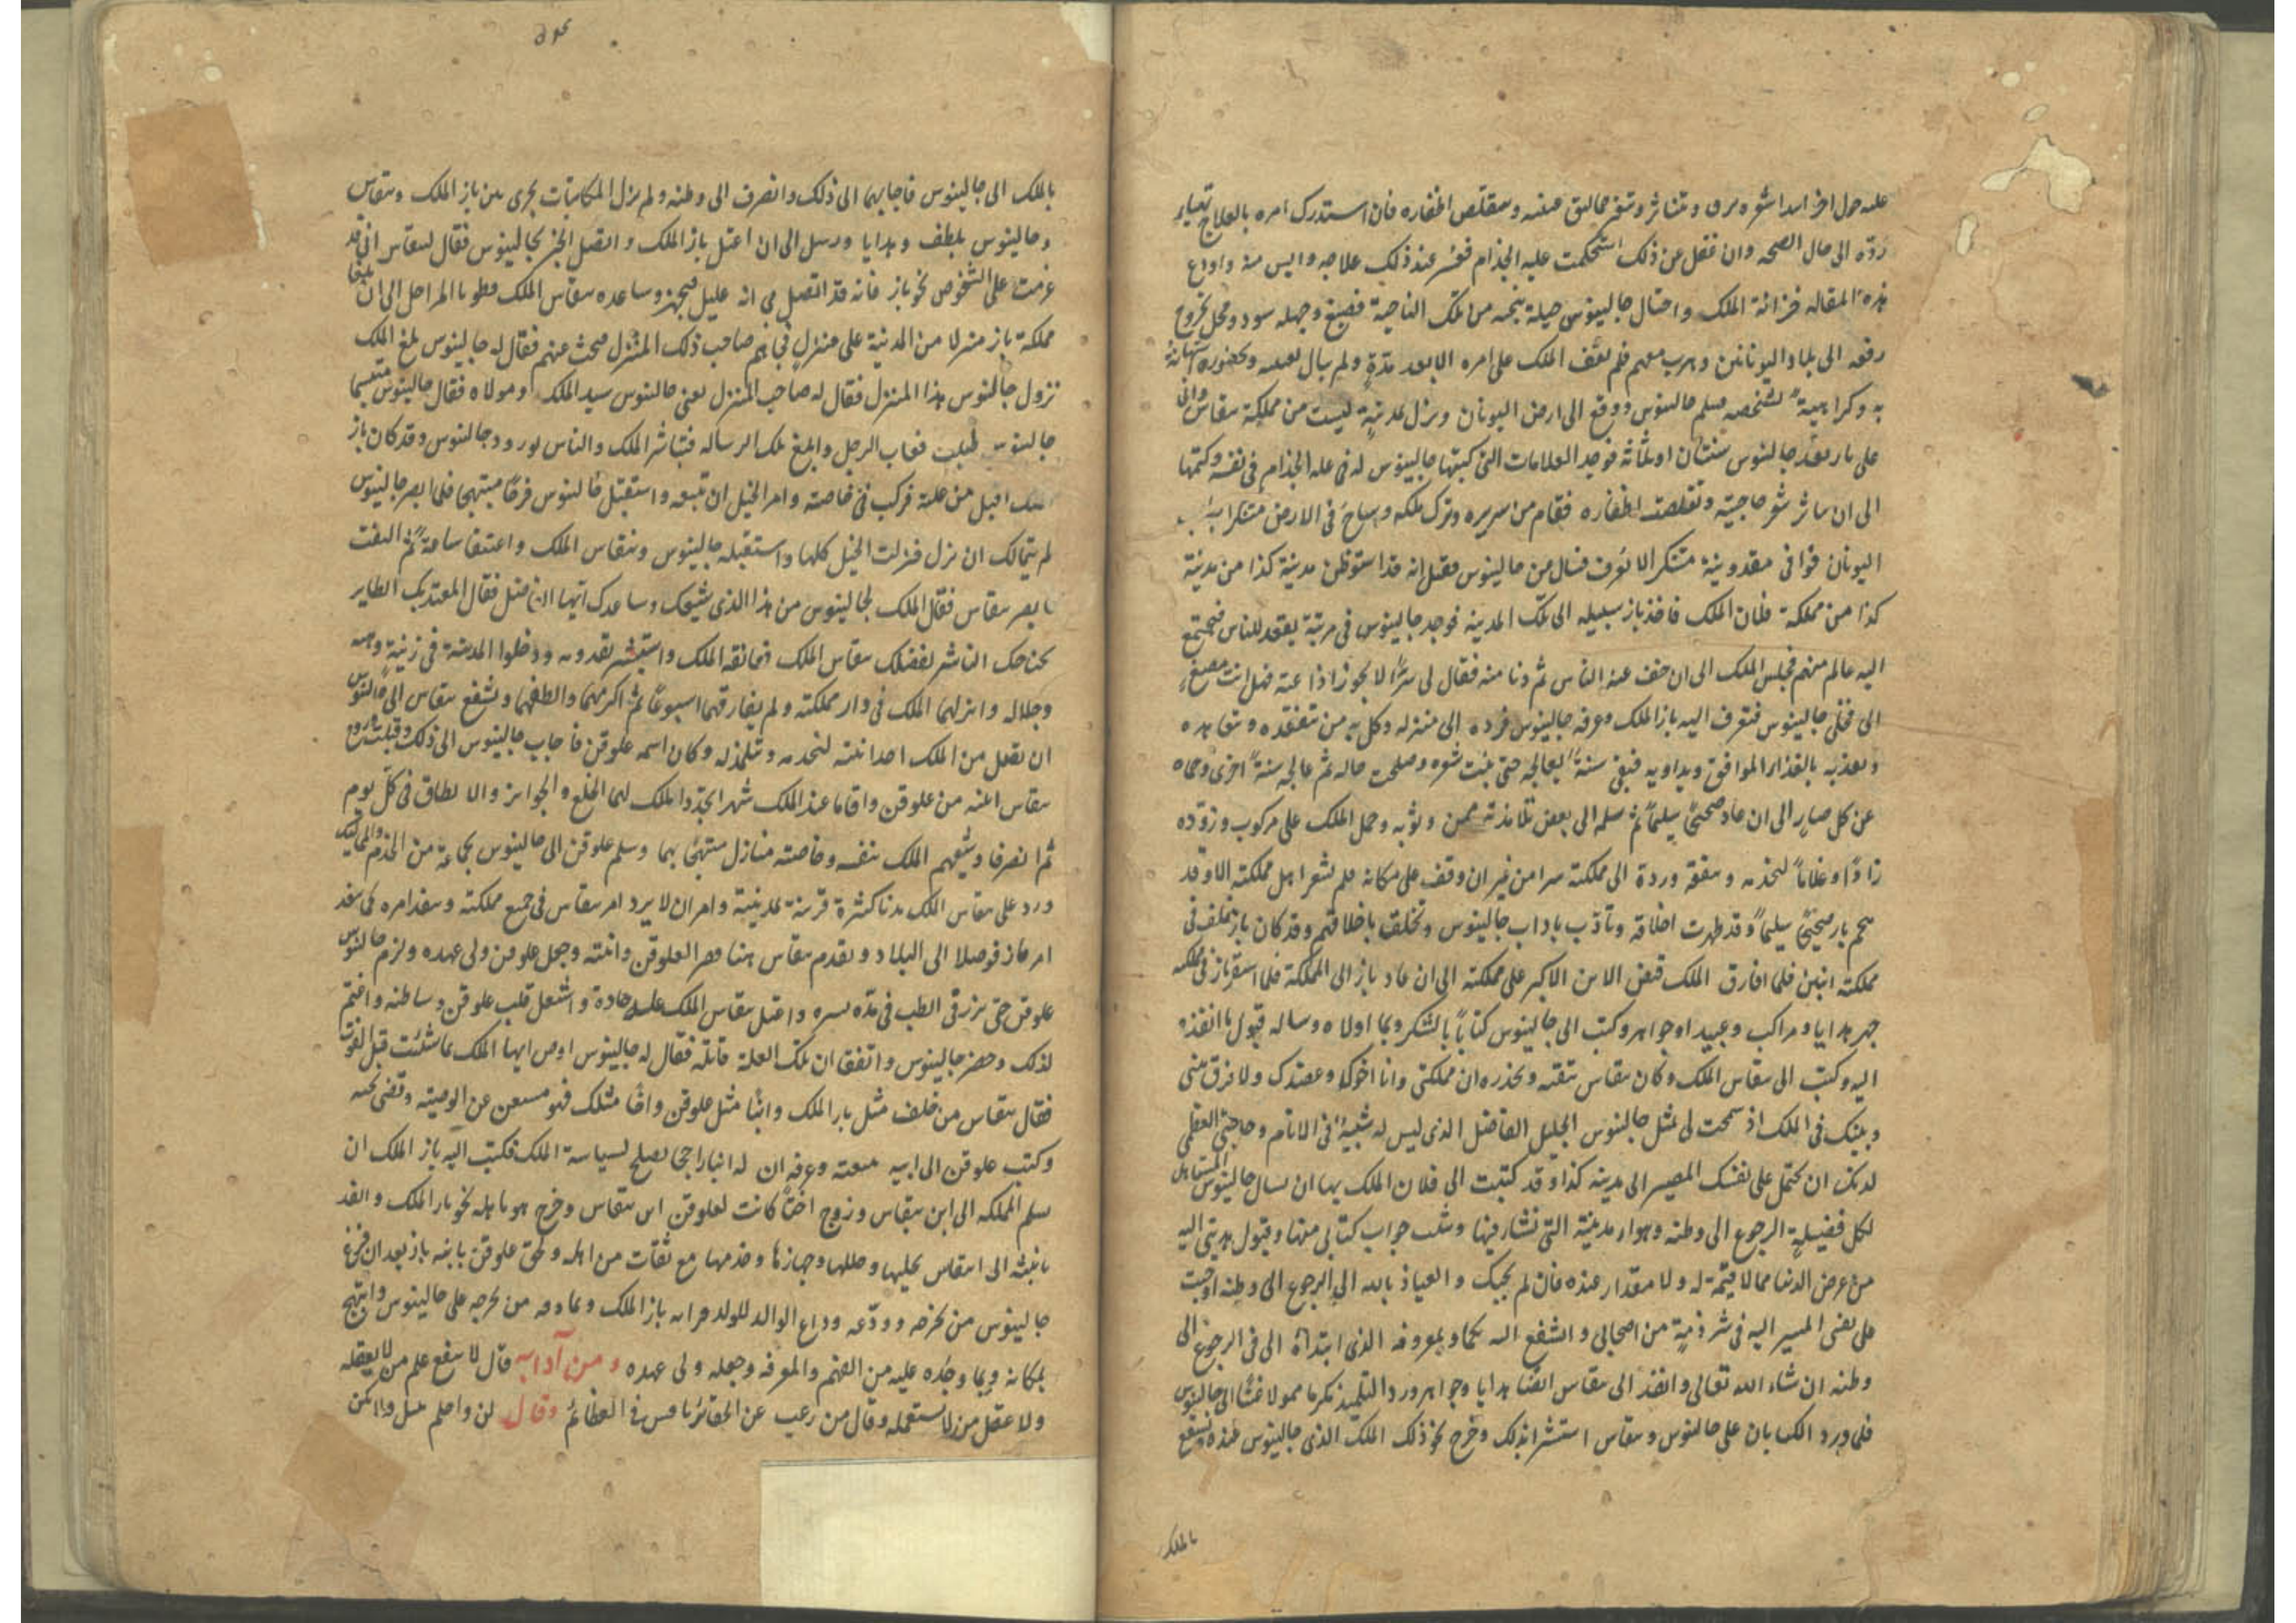 عليه حول اخر ابدا شعره مرق وتناثر وشق مماليق عينيه وتقلص اظفاره فان استدرك امره بالعلاج
ردّه الى حال الصحه وان غفل عن ذلك استحكمت عليه الجذام فعسر عند ذلك علاجه وايس منه واودع
هذه المقاله خزانة الملك واحتال جالينوس حيلة من تلك الناحية فصبغ وجهه سود
رفعه الى بلاد اليونانين وهرب معهم فلم يقف الملك على امره الا بعد مدّة ولم يبال
به وكراهية لشخصه فسلم جالينوس ووقع الى ارض اليونان ونزل بمدينة ليست من مملكة بيقاس
على باز بعد جالينوس سنتان او ثلاثة فوجد العلامات التى كتبها جالينوس له فى علة الجذام فى نفسه وكتمها
الى ان تناثر شعر حاجبيه وتقلصت اظفاره فقام من سريره وترك ملكه وساح فى الارض متنكرا
اليونان فوافى مقدونية متنكرا لا يعرف فسال عن جالينوس فقيل انه قد استوطن مدينة كذا من مدينة
كذا من مملكة فلان الملك فاخذ باز سبيله الى تلك المدينه فوجد جالينوس فى مرتبة يقعد للناس فيجتمع
اليه عالم منهم فجلس الملك الى ان خف عنه الناس ثم دنا منه فقال لى سرّ لا يجوز اذاعته فهل انت مصيغ
الى فخلى جالينوس فتعرف اليه باز الملك وعرفه جالينوس فرده الى منزله وكل به من يتفقده وتعاهده
ويغذيه بالغذاء الموافق ويداويه فبقى سنة يعالجه حتى نبتت شعره وصلحت حاله ثم عالجه سنة اخرى وحماه
عن كل ضار الى ان عاد صحيحًا سليمًا ثم سلمه الى بعض تلامذته ممن وثق به وحمل الملك على مركوب وزوّده
زادًا وغلامًا لخدمه ونفقه ورده الى مملكته سرا من غير ان وقف على مكانه فلم يشعر اهل مملكته الا وقد
هجم باز صحيحًا سليمًا وقد ظهرت اخلاقه وتادّب باداب جالينوس وتخلق باخلاقهم وقد كان باز تخلف فى
مملكته ابنين فلما فارق الملك قبض الابن الاكبر على مملكته الى ان عاد باز الى المملكة فلما استقر باز فى ملكه
جهز هدايا ومراكب وعبيدا وجواهر وكتب الى جالينوس كتابًا بالشكر وبما اولاه وساله قبول ما انفذه
اليه وكتب الى بيقاس الملك وكان بيقاس يتقيه ويحذره ان مملكتى وانا اخوك وعضدك ولا فرق بينى
وبينك فى الملك اذ سمحت لى بمثل جالينوس الجليل الفاضل الذى ليس له شبية فى الانام وحاجتى العظمى
لديك ان تحمل على نفسك المصير الى مدينة كذا وقد كتبت الى فلان الملك بها ان يسال جالينوس المستاهل
لكل فضيلة الرجوع الى وطنه وهواء مدينته التى نشا فيها وشب جواب كتابى منها وقبول هديتى اليه
من عرض الدنيا مما لا قيمة له ولا مقدار عنده فان لم يجبك والعياذ بالله الى الرجوع الى وطنه اوجبت
على نفسى المسير اليه فى شرذمة من اصحابى والشفع اليه بكما وبمعروفه الذى ابتداه الى فى الرجوع الى
وطنه ان شاء الله تعالى وانفذ الى بيقاس ايضا هدايا وجواهر ورد التلميذ مكرما الى جالينوس
فلما ورد الكتابان على جالينوس وبيقاس استبشرا بذلك وخرج نحو ذلك الملك الذى جالينوس عنده وتشفع
بالملك
بالملك الى جالينوس فاجابهما الى ذلك وانصرف الى وطنه ولم يزل المكاتبات تجرى بين باز الملك وبيقاس
وجالينوس بلطف وهدايا ورسل الى ان اعتل باز الملك واتصل الخبر بجالينوس فقال لبيقاس انى قد
عزمت على الشخوص نحو باز فانه قد اتصل بى انه عليل فتجهز وساعده بيقاس الملك فطويا المراحل الى ان بلغا
مملكة باز منزلا من المدينة على منزل فجاءهم صاحب ذلك المنزل فبحث عنهم فقال له جالينوس بلغ الملك
نزول جالينوس هذا المنزل فقال له صاحب المنزل يعنى جالينوس سيد الملك ومولاه فقال جالينوس متبسما
جالينوس طبيب فغاب الرجل وابلغ تلك الرساله فتباشر الملك والناس بورود جالينوس وقد كان باز
اقبل من علته فركب فى خاصته وامر الخيل ان تتبعه واستقبل جالينوس فرحًا مبتهجا فلما ابصر جالينوس
لم يتمالك ان نزل فنزلت الخيل كلها واستقبله جالينوس وبيقاس الملك واعتنقا ساعة ثم التفت
بيقاس فقال الملك لجالينوس من هذا الذى شيعك وساعدك ايها الفاضل فقال المعتد بك الطاير
بجناحك الناشر لفضلك بيقاس الملك فعانقه الملك واستبشر بقدومه ودخلوا المدينة فى زينة
وجلاله وانزلهما الملك فى دار مملكته ولم يفارقهما اسبوعًا ثم اكرمهما والطفهما وتشفع بيقاس الى جالينوس
ان يقبل من الملك احد ابنيه لخدمه وتلمذ له وكان اسمه علوقن فاجاب جالينوس الى ذلك
بيقاس ابنته من علوقن واقاما عند الملك شهرا يجدّد الملك لهما الخلع والجوائز والالطاف فى كلّ يوم
ثم انصرفا وشيعهم الملك بنفسه وخاصته منازل مبتهجًا بهما وسلم علوقن الى جالينوس بجماعة من الخدم والمماليك
ورد على بيقاس الملك مدنا كثيرة قريبة بمدينته وامر ان لا يرد امر بيقاس فى جميع مملكته وينفذ امره كما ينفذ
امر باز فوصلا الى البلاد وتقدم بيقاس لعلوقن وابنته وجعل علوقن ولى عهده ولزم جالينوس
علوقن حتى برز فى الطب فى مدّة يسيره واعتل بيقاس الملك علة حادة واشتعل قلب علوقن وساطنه واغتم
لذلك وحضر جالينوس واتفق ان تلك العلة قاتلة فقال له جالينوس اوص ايها الملك بما شئت قبل الفوت
فقال بيقاس من خلف مثل باز الملك وابنا مثل علوقن واخًا مثلك فهو مستغن عن الوصيه وقضى نحبه
وكتب علوقن الى ابيه ينعته وعرفه ان له ابنا راجحا يصلح لسياسة الملك فكتب اليه باز الملك ان
سلم المملكه الى ابن بيقاس وزوج اختًا كانت لعلوقن ابن بيقاس وخرج هو باهله نحو باز الملك وانفذ
بابنته الى ابن بيقاس بحليها وحللها وجهازها وخدمها مع ثقات من اهله ولحق علوقن بابيه باز بعد ان فرغ
جالينوس من تخرجه وودّعه وداع الوالد للولد وسر به باز الملك وبما وهبه من تخرجه على جالينوس وابتهج
بمكانه وبما وجده عليه من الفهم والمعرفه وجعله ولى عهده ومن آدابه قال لا ينفع علم من لا يعقله
ولا عقل من لا يستعمله وقال من رغب عن الحقائر نافس فى العظائم وقال لن واحلم تنبل ولا تكن